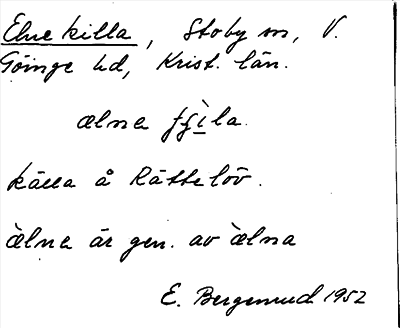 Elne killa, Stoby sn, V.
Göinge hd, Krist. län.
ælna ʃʃìla.
källa å Rättelöv.
ælna är gen. av ælna
E. Bergmud 1952